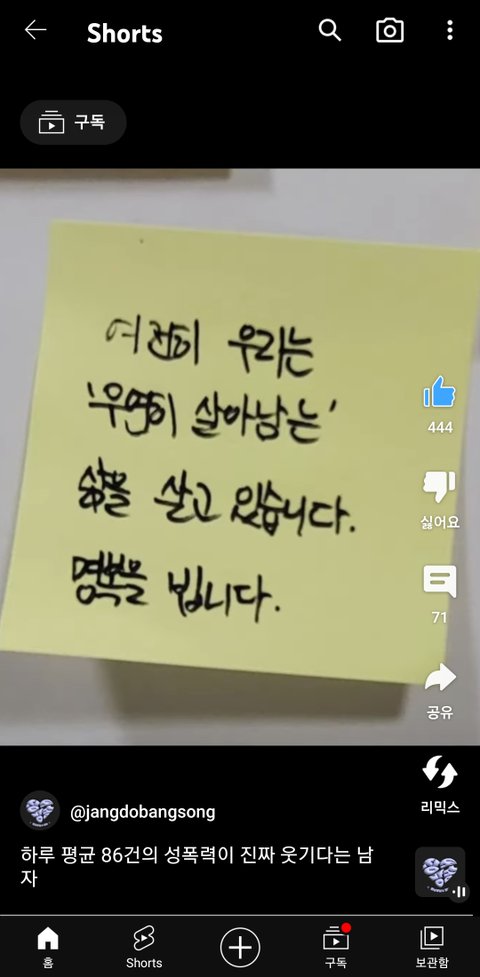 Shorts
구독
여전히 우리는
'우연히 살아남는'
삶을 살고 있습니다.
명복을 빕니다.
444
싫어요
71
공유
리믹스
@jangdobangsong
하루 평균 86건의 성폭력이 진짜 웃기다는 남
자
홈
Shorts
구독
보관함